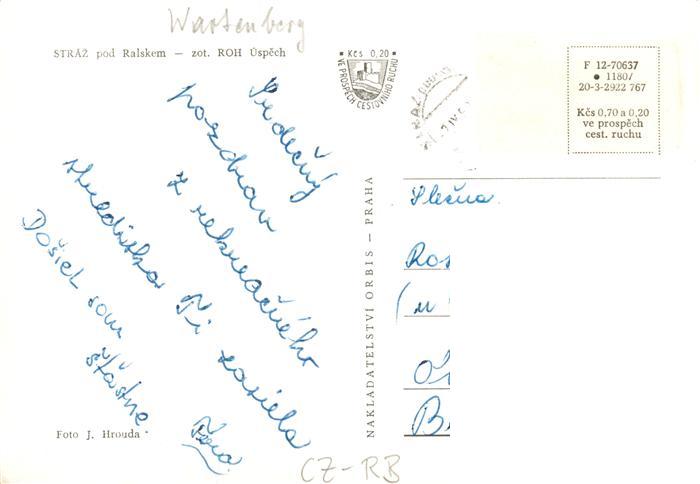 Wartenberg
STRÁŽ pod Ralskem — zot. ROH Úspěch
Kčs 0,20
VE PROSPĚCH CESTOVNÍHO RUCHU
F 12-70637
1180/
20-3-2922 767
Kčs 0,70 a 0,20
ve prospěch
cest. ruchu
Srdečný
pozdrav
z rekreačného
strediska Ti zasiela
Došiel som
šťastne
NAKLADATELSTVÍ ORBIS — PRAHA
Slečna
Ros
(u
B.
Foto J. Hrouda
CZ-RB